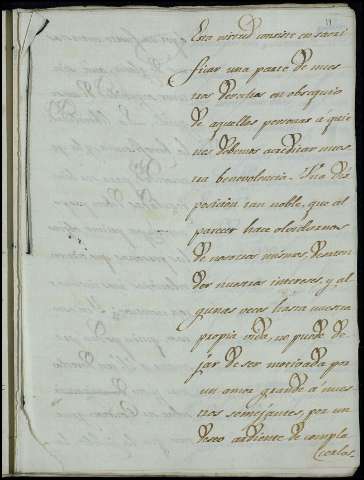 11
Esta virtud consiste en sacri
ficar una parte de nues
tros derechos en obsequio
de aquellas personas á quie
nes debemos acreditar nues
tra benevolencia. Una dis
posicion tan noble, que al
parecer hace olvidarnos
de nosotros mismos, desaten
der nuestros intereses, y al
gunas veces hasta nuestra
propia vida, no puede de
jar de ser motivada por
un amor grande á nues
tros semejantes, por un
deseo ardiente de compla
cerlos.